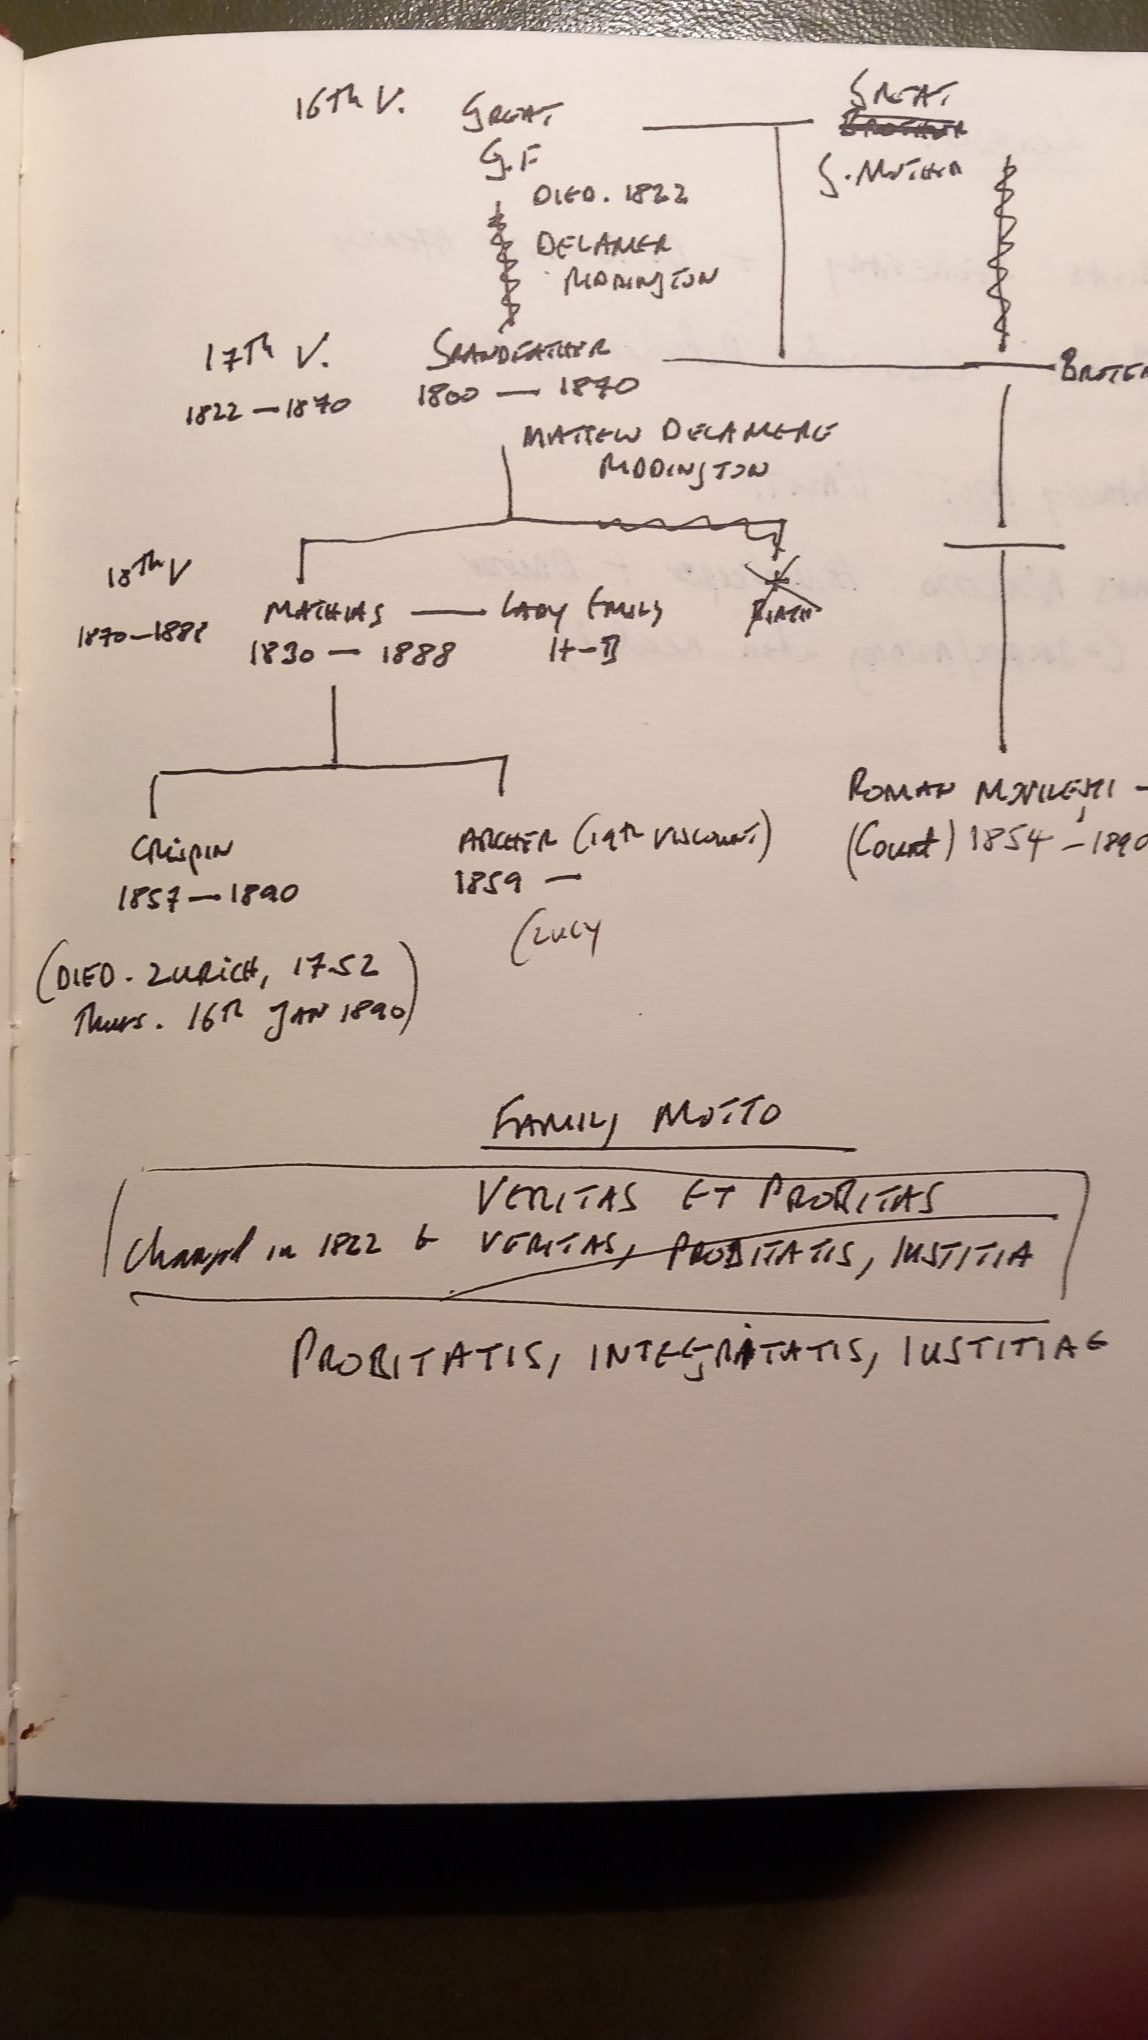 16Th V.
GREAT
G.F
DIED. 1822
DELAMER
RIDDINGTON
GREAT
BROTHER
G. MOTHER
17Th V.
1822 – 1870
GRANDFATHER
1800 – 1870
MATTEW DELAMERE
RIDDINGTON
BROTHE
18Th V
1870–1888
MATHIAS
1830 – 1888
LADY EMILY
H-B
BIRTH
CRISPIN
1857 – 1890
(DIED. ZURICH, 17.52
Thurs. 16Th JAN 1890)
ARCHER (19Th VISCOUNT)
1859 –
(LUCY
ROMAN –
(Count) 1854 – 1890
FAMILY MOTTO
VERITAS ET PROBITAS
Changed in 1822 to VERITAS, PROBITATIS, IUSTITIA
PROBITATIS, INTEGRATATIS, IUSTITIAE